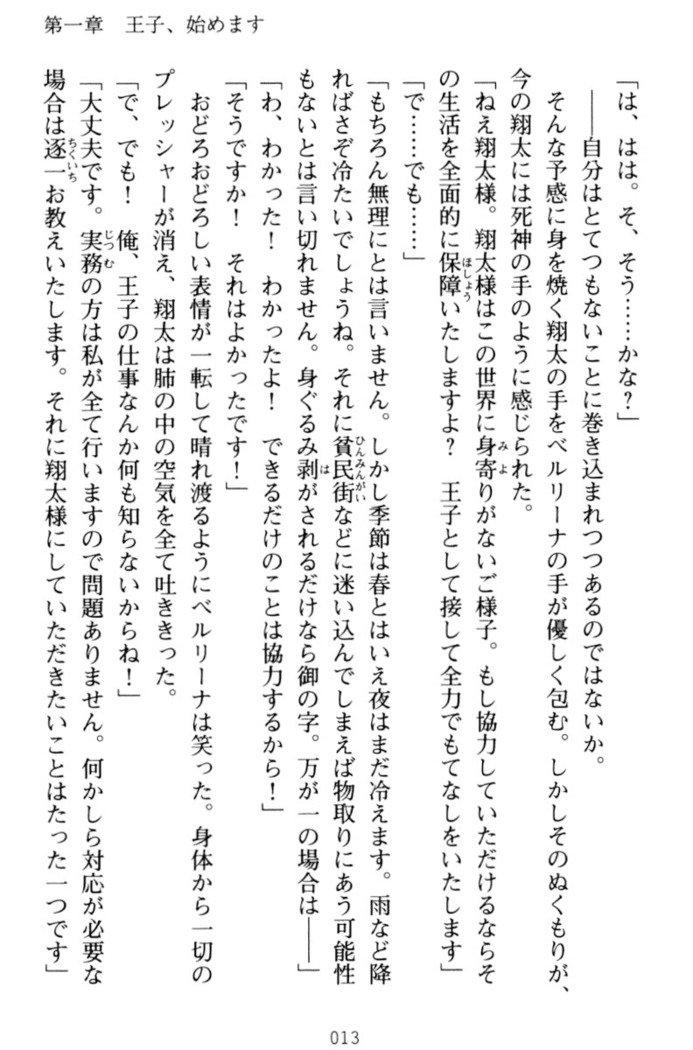 第一章　王子、始めます
「は、はは。そ、そう……かな？」
――自分はとてつもないことに巻き込まれつつあるのではないか。
そんな予感に身を焼く翔太の手をベルリーナの手が優しく包む。しかしそのぬくもりが、
今の翔太には死神の手のように感じられた。
「ねえ翔太様。翔太様はこの世界に身寄りがないご様子。もし協力していただけるならそ
の生活を全面的に保障いたしますよ？　王子として接して全力でもてなしをいたします」
「で……でも……」
「もちろん無理にとは言いません。しかし季節は春とはいえ夜はまだ冷えます。雨など降
ればさぞ冷たいでしょうね。それに貧民街などに迷い込んでしまえば物取りにあう可能性
もないとは言い切れません。身ぐるみ剥がされるだけなら御の字。万が一の場合は――」
「わ、わかった！　わかったよ！　できるだけのことは協力するから！」
「そうですか！　それはよかったです！」
おどろおどろしい表情が一転して晴れ渡るようにベルリーナは笑った。身体から一切の
プレッシャーが消え、翔太は肺の中の空気を全て吐ききった。
「で、でも！　俺、王子の仕事なんか何も知らないからね！」
「大丈夫です。実務の方は私が全て行いますので問題ありません。何かしら対応が必要な
場合は逐一お教えいたします。それに翔太様にしていただきたいことはたった一つです」
013